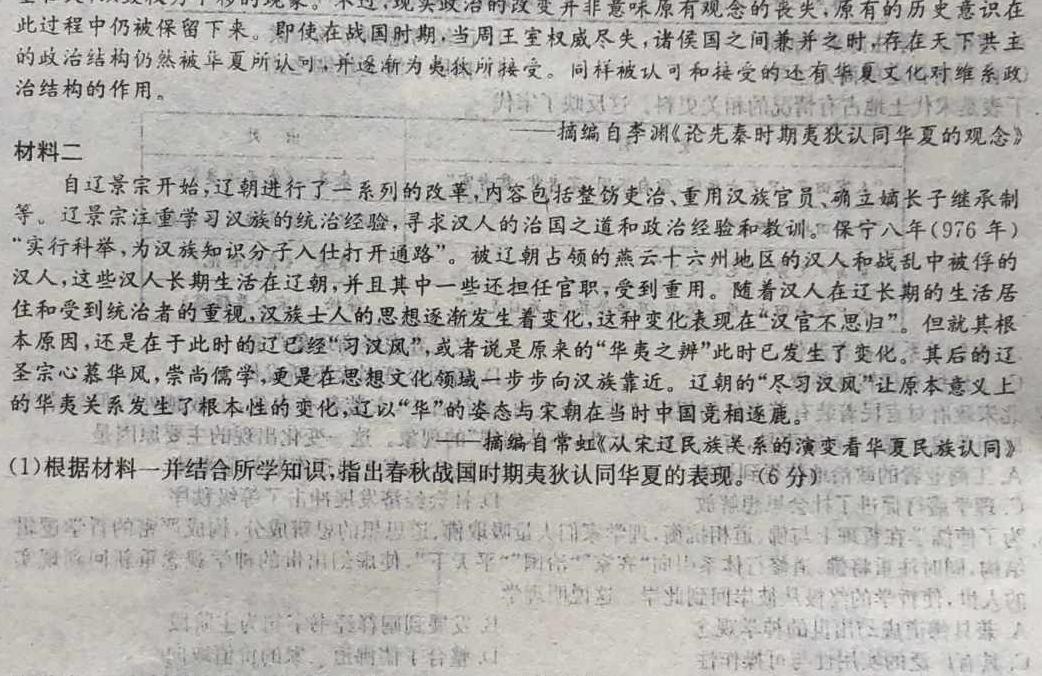 现实政治的改变并非意味原有观念的丧失,原有的历史意识在
此过程中仍被保留下来。即使在战国时期,当周王室权威尽失,诸侯国之间兼并之时,存在天下共主
的政治结构仍然被华夏所认可,并逐渐为夷狄所接受。同样被认可和接受的还有华夏文化对维系政
治结构的作用。
——摘编自李渊《论先秦时期夷狄认同华夏的观念》
材料二
自辽景宗开始,辽朝进行了一系列的改革,内容包括整饬吏治、重用汉族官员、确立嫡长子继承制
等。辽景宗注重学习汉族的统治经验,寻求汉人的治国之道和政治经验和教训。保宁八年(976 年)
“实行科举,为汉族知识分子入仕打开通路”。被辽朝占领的燕云十六州地区的汉人和战乱中被俘的
汉人,这些汉人长期生活在辽朝,并且其中一些还担任官职,受到重用。随着汉人在辽长期的生活居
住和受到统治者的重视,汉族士人的思想逐渐发生着变化,这种变化表现在“汉官不思归”。但就其根
本原因,还是在于此时的辽已经“习汉风”,或者说是原来的“华夷之辨”此时已发生了变化。其后的辽
圣宗心慕华风,崇尚儒学,更是在思想文化领域一步步向汉族靠近。辽朝的“尽习汉风”让原本意义上
的华夷关系发生了根本性的变化,辽以“华”的姿态与宋朝在当时中国竞相逐鹿。
——摘编自常虹《从宋辽民族关系的演变看华夏民族认同》
(1)根据材料一并结合所学知识,指出春秋战国时期夷狄认同华夏的表现。(6 分)